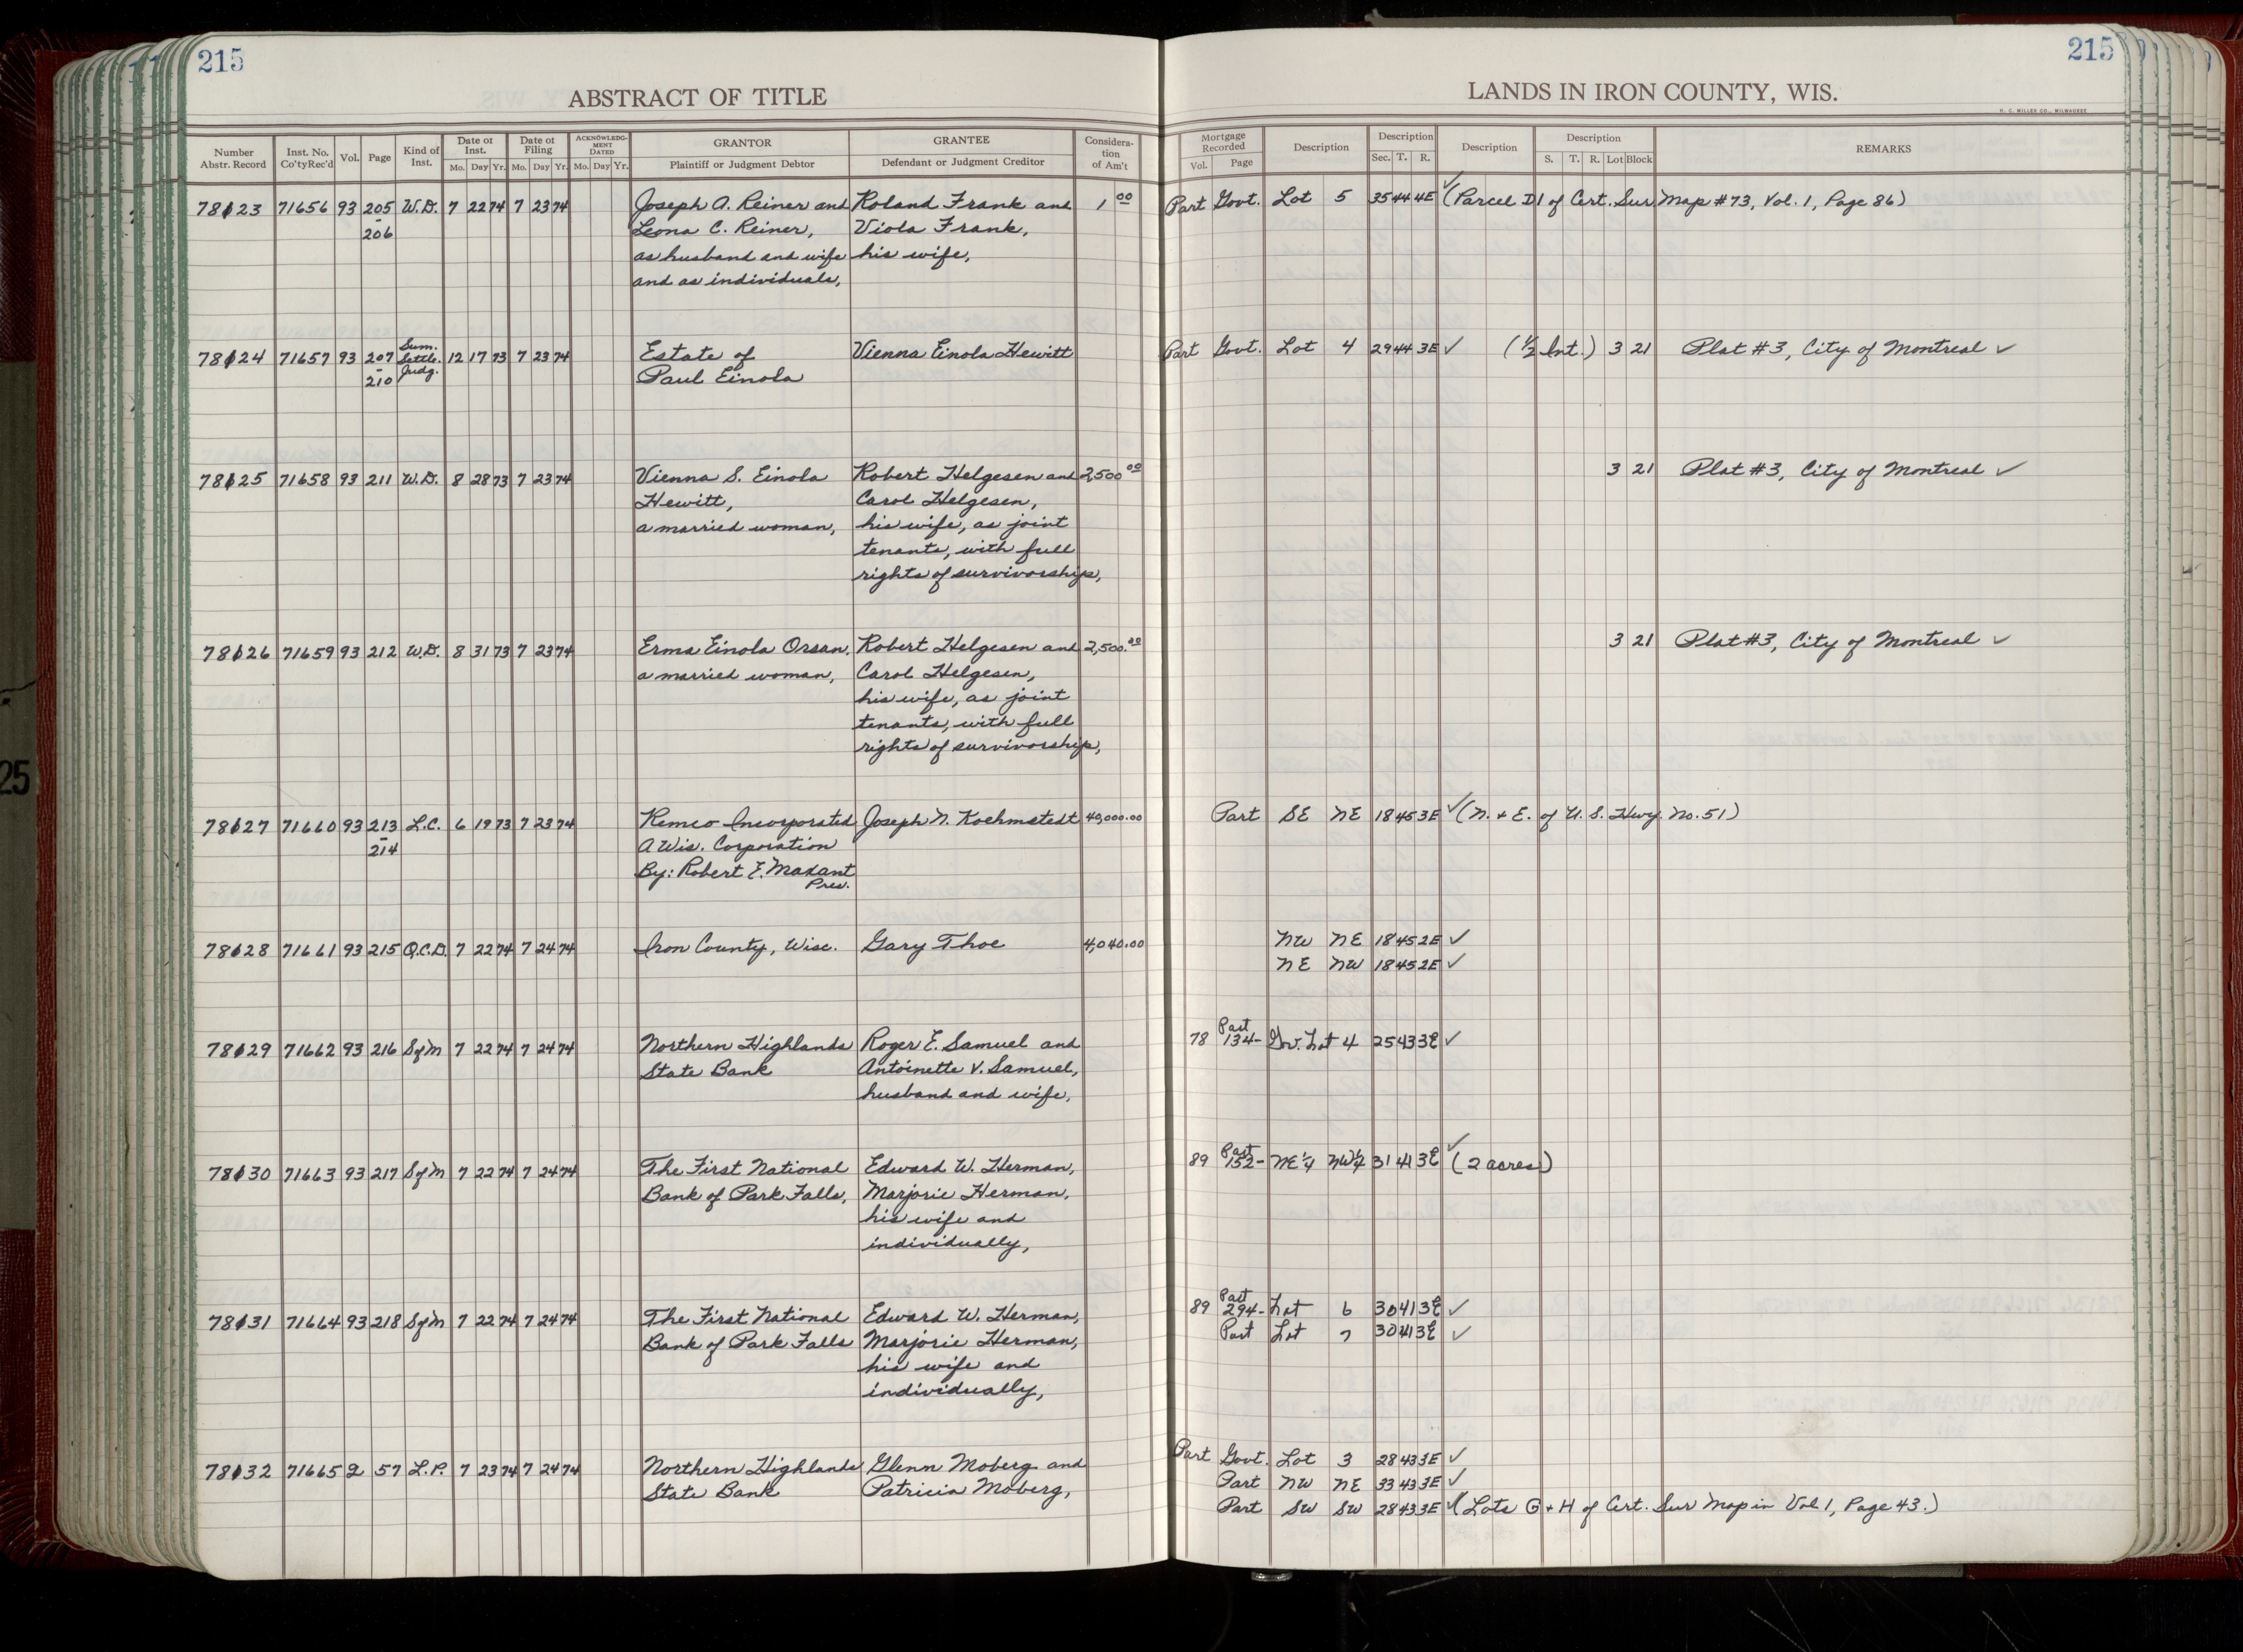 215
215
ABSTRACT OF TITLE
LANDS IN IRON COUNTY, WIS.
H. C. MILLER CO., MILWAUKEE
Number Abstr. Record | Inst. No. Co'ty Rec'd | Vol. | Page | Kind of Inst. | Date of Inst. Mo. Day Yr. | Date of Filing Mo. Day Yr. | ACKNOWLEDGMENT DATED Mo. Day Yr. | GRANTOR Plaintiff or Judgment Debtor | GRANTEE Defendant or Judgment Creditor | Consideration of Am't | Mortgage Recorded Vol. Page | Description | Description Sec. T. R. | Description | Description S. T. R. Lot Block | REMARKS
78123 71656 93 205 W.D. 7 22 74 7 23 74 Joseph A. Reiner and Roland Frank and 1 00 Part Govt. Lot 5 35 44 4E ✓ (Parcel D1 of Cert. Sur Map #73, Vol. 1, Page 86)
- 206 Leona C. Reiner, Viola Frank,
as husband and wife his wife,
and as individuals,
78124 71657 93 207 - 210 Sum. Settle. Judg. 12 17 73 7 23 74 Estate of Vienna Einola Hewitt Part Govt. Lot 4 29 44 3E ✓ (1/2 Int.) 3 21 Plat #3, City of Montreal ✓
Paul Einola
78125 71658 93 211 W.D. 8 28 73 7 23 74 Vienna S. Einola Robert Helgesen and 2,500 00 3 21 Plat #3, City of Montreal ✓
Hewitt, Carol Helgesen,
a married woman, his wife, as joint
tenants, with full
rights of survivorship,
78126 71659 93 212 W.D. 8 31 73 7 23 74 Erma Einola Orsan, Robert Helgesen and 2,500.00 3 21 Plat #3, City of Montreal ✓
a married woman, Carol Helgesen,
his wife, as joint
tenants, with full
rights of survivorship,
78127 71660 93 213 L.C. 6 19 73 7 23 74 Kemco Incorporated Joseph N. Koehmstedt 40,000.00 Part SE NE 18 45 3E ✓ (N. + E. of U. S. Hwy. No. 51)
- 214 A Wis. Corporation
By: Robert E. Maxant
Pres.
78128 71661 93 215 Q.C.D. 7 22 74 7 24 74 Iron County, Wisc. Gary Thoe 4,040.00 NW NE 18 45 2E ✓
NE NW 18 45 2E ✓
78129 71662 93 216 SofM 7 22 74 7 24 74 Northern Highlands Roger E. Samuel and 78 134- Part Gov. Lot 4 25 43 3E ✓
State Bank Antoinette V. Samuel,
husband and wife,
78130 71663 93 217 SofM 7 22 74 7 24 74 The First National Edward W. Herman, 89 152- Part NE 1/4 NW 1/4 31 41 3E ✓ (2 acres)
Bank of Park Falls, Marjorie Herman,
his wife and
individually,
78131 71664 93 218 SofM 7 22 74 7 24 74 The First National Edward W. Herman, 89 294- Part Lot 6 30 41 3E ✓
Bank of Park Falls Marjorie Herman, Part Lot 7 30 41 3E ✓
his wife and
individually,
78132 71665 2 57 L.P. 7 23 74 7 24 74 Northern Highlands Glenn Moberg and Part Govt. Lot 3 28 43 3E ✓
State Bank Patricia Moberg, Part NW NE 33 43 3E ✓
Part SW SW 28 43 3E ✓ (Lots G + H of Cert. Sur Map in Vol 1, Page 43.)
25